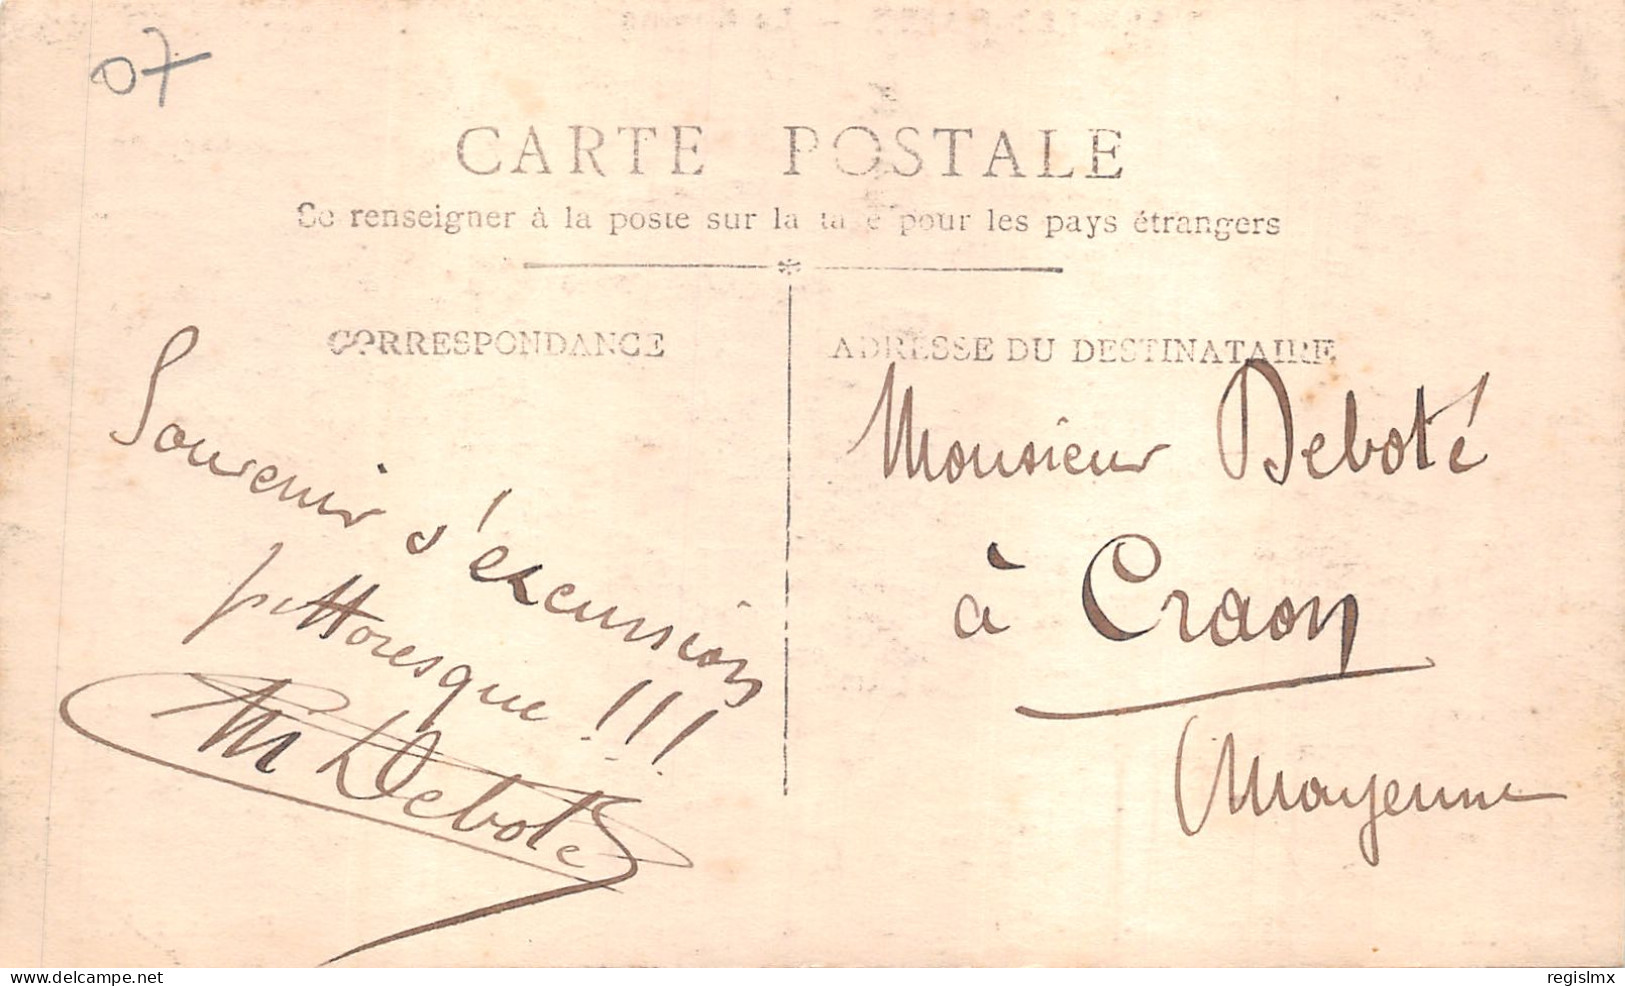 07
CARTE POSTALE
Se renseigner à la poste sur la taxe pour les pays étrangers
CORRESPONDANCE
Souvenir d'excursion
pittoresque !!!
M Deboté
ADRESSE DU DESTINATAIRE
Monsieur Deboté
à Craon
Mayenne
www.delcampe.net
regislmx